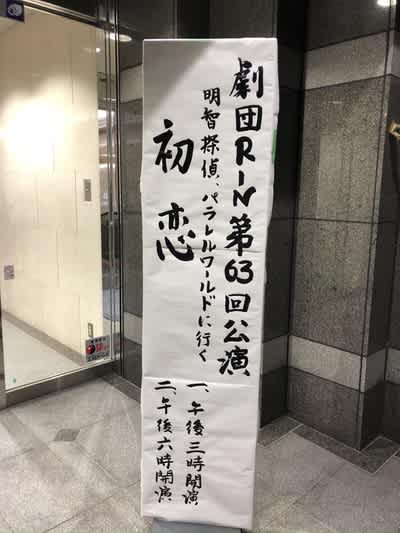 劇団RIN第63回公演
明智探偵、パラレルワールドに行く
初恋
一、午後三時開演
二、午後六時開演